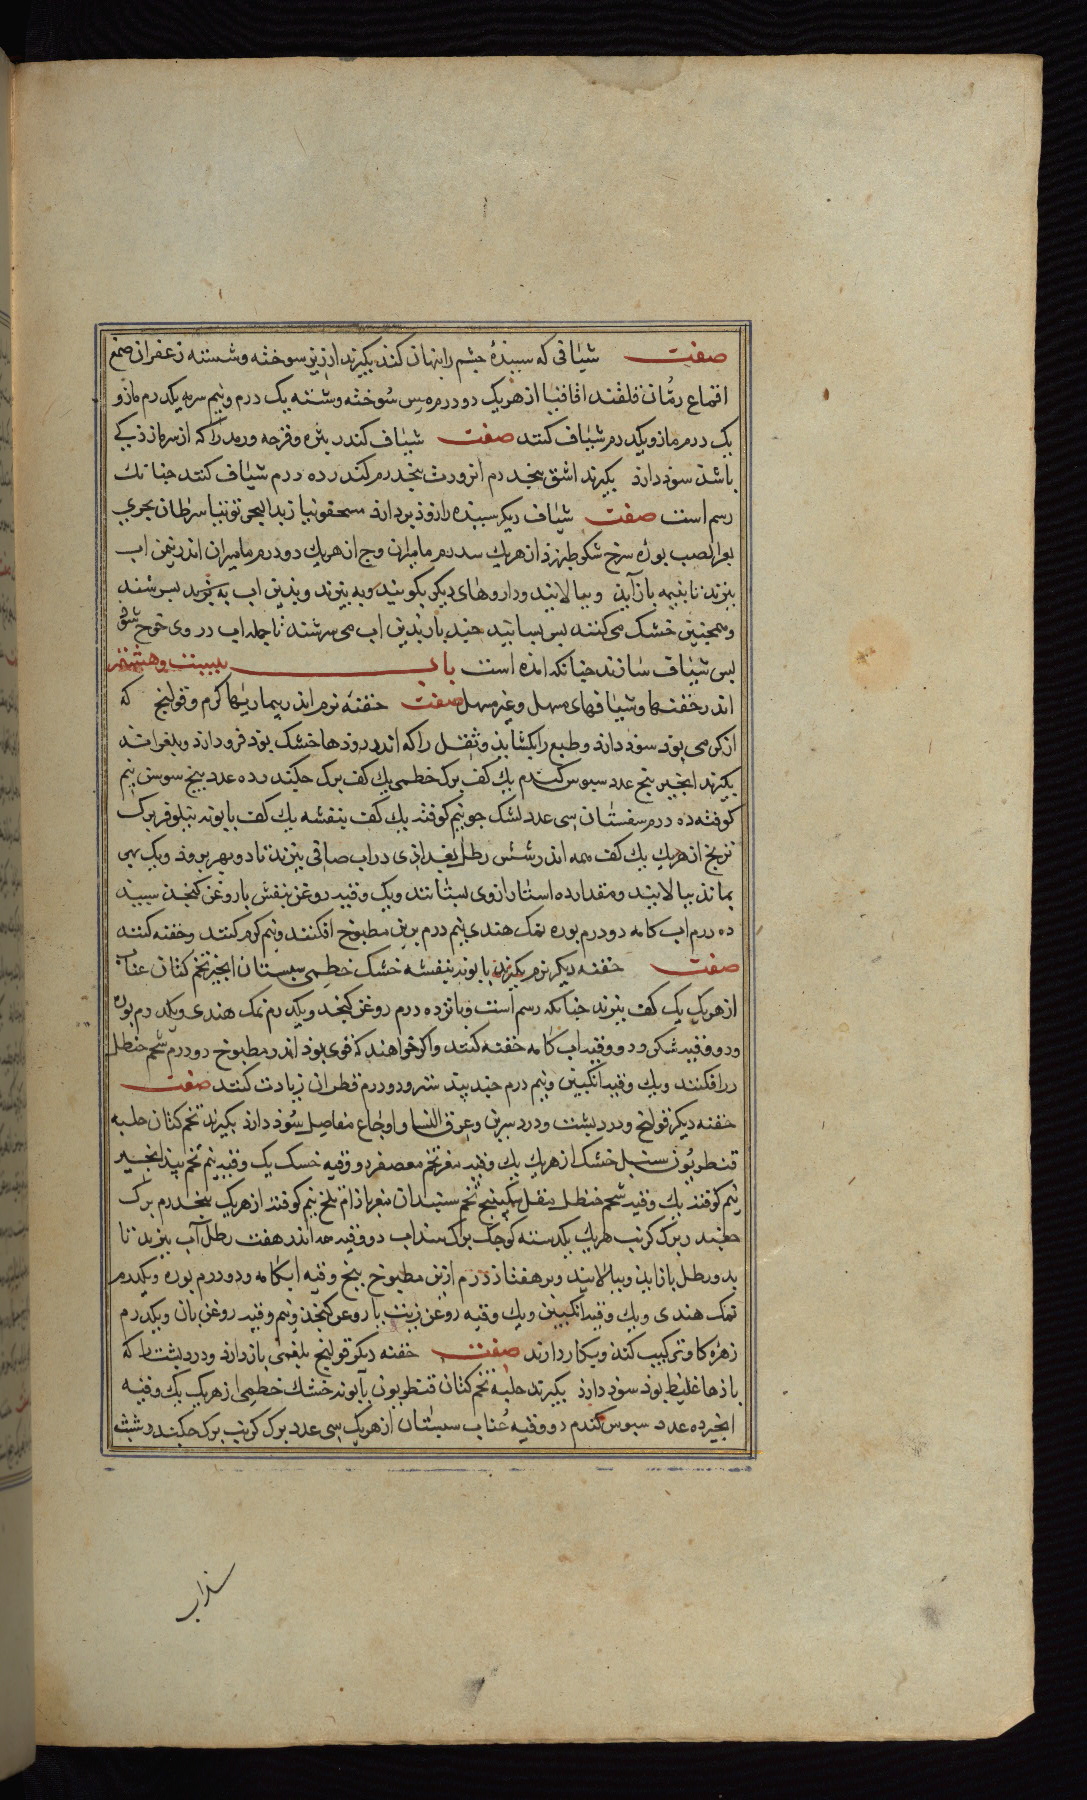 صفت شیافی که سبیذهٔ چشم را بنهان کند بکیرند ارزیز سوخته و شسته زعفران صمغ
اقماع رمّان قلقند اقاقیا از هریک دو درم مس سُوخته و شسته یک درم و نیم سرمه یکدرم مازو
یک درم مازو یکدرم شیاف کنند صفت شیاف کندر بثره و قرحه و رمد را که از سرما ذیکی
باشذ سوذ دارذ بکیرند اشق بنجدرم انزورت بنجدرم کندر ده درم شیاف کنند جنانک
رسم است صفت شیاف دیکر سبیذه را زوذ بردارذ مسحقونیا زبدالبحر توتیا سرطان بحری
بعر الضب بوره سرخ شکر طبرزذ از هریک سه درم مامیران وج از هریک دو درم مامیران اندر نیم من اب
ببزند تا بنیمه بازآیذ و ببالایند و داروهای دیکر بکوبند و به بیزند و بذین اب بسرشند
و همجنین خشک می کنند بس بسایند جند بار بذین اب می سرشند تا جمله اب در وی خرج شوذ
بس شیاف سازند جنانکه امده است باب بیست و هشتم
اندر حقنها و شیافهای مسهل و غیر مسهل صفت حقنه نرم اندر بیماریها کرم و قولنج که
از کرمی بوذ سوذ دارذ و طبع را بکشایذ و ثفل را که اندر روذها خشک بوذ فروذ ارذ
بکیرند انجیر بنج عدد سبوس کندم یک کف برک خطمی یک کف برک جکندر ده عدد بیخ سوسن نیم
کوفته ده درم سفستان سی عدد کشک جو نیم کوفته یک کف بنفشه یک کف بابونه نیلوفر برک
از هریک یک کف همه اندر شش رطل بغداذی در اب صافی ببزند تا دو بهر بروذ و یک بهر
بماند ببالایند و مقدار ده استار از وی بستانند و یک وقیه روغن بنفش یا روغن کنجذ سبید
ده درم اب کامه دو درم بوره نمک هندی نیم درم برین مطبوخ افکنند و نیم کرم کنند و حقنه کنند
صفت حقنه دیکر نرم بکیرند بابونه بنفشه خشک خطمی سبستان انجیر تخم کتان عناب
از هریک یک کف ببزند جنانکه رسم است و بانزده درم روغن کنجد و یکدرم نمک هندی و یکدرم بوره
و دو وقیه شکر و دو وقیه اب کامه حقنه کنند و اکر خواهند که قوی بوذ اندر مطبوخ دو درم شحم حنظل
درافکنند و یک وقیه انکبین و نیم درم جندبیدستر و دو درم قطران زیادت کنند صفت
حقنه دیکر قولنج و درد بشت و درد سرین و عرق النسا و اوجاع مفاصل سُوذ دارذ بکیرند تخم کتان حلبه
قنطوریُون سنبل خشک از هریک یک وقیه مغز تخم معصفر دو وقیه خسک یک وقیه نیم تخم بیدانجیر
نیم کوفته یک وقیه شحم حنظل مقل سکبینج تخم سبندان مغز باذام تلخ نیم کوفته از هریک بنجدرم برک
جکندر برک کرنب هریک یکدسته کوجک برک سذاب دو وقیه همه اندر هفت رطل آب ببزند تا
بدو رطل بازایذ و ببالایند و بر هفتاذ درم ازین مطبوخ بنج وقیه ابکامه و دو درم بوره و یکدرم
نمک هندی و یک وقیه انکبین و یک وقیه روغن زیت یا روغن کنجذ و نیم وقیه روغن بان و یکدرم
زهره کاو ترکیب کنند و بکار دارند صفت حقنه دیکر قولنج بلغمی باز دارذ و درد بشت را که
باذها غلیظ بوذ سوذ دارذ بکیرند حلبه تخم کتان قنطوریون بابونه خشک خطمی از هریک یک وقیه
انجیر ده عدد سبوس کندم دو وقیه عُناب سبستان از هریک سی عدد برک کرنب برک جکندر شبت
سذاب